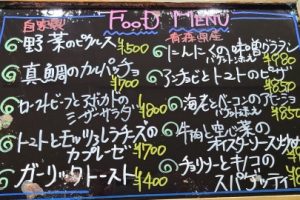 FOOD MENU
自家製
野菜のピクルス ¥500
真鯛のカルパッチョ
¥700
ローストビーフとアボカドの
シーザーサラダ ¥800
トマトとモッツァレラチーズの
カプレーゼ ¥700
ガーリックトースト
¥400
青森県産
にんにくの味噌グラタン
バゲット添え ¥980
アンチョビとトマトのピザ
¥850
海老とベーコンのアヒージョ
バゲット添え ¥850
牛肉と空心菜の
オイスターソース
チョリソーとキノコの
スパゲッティ